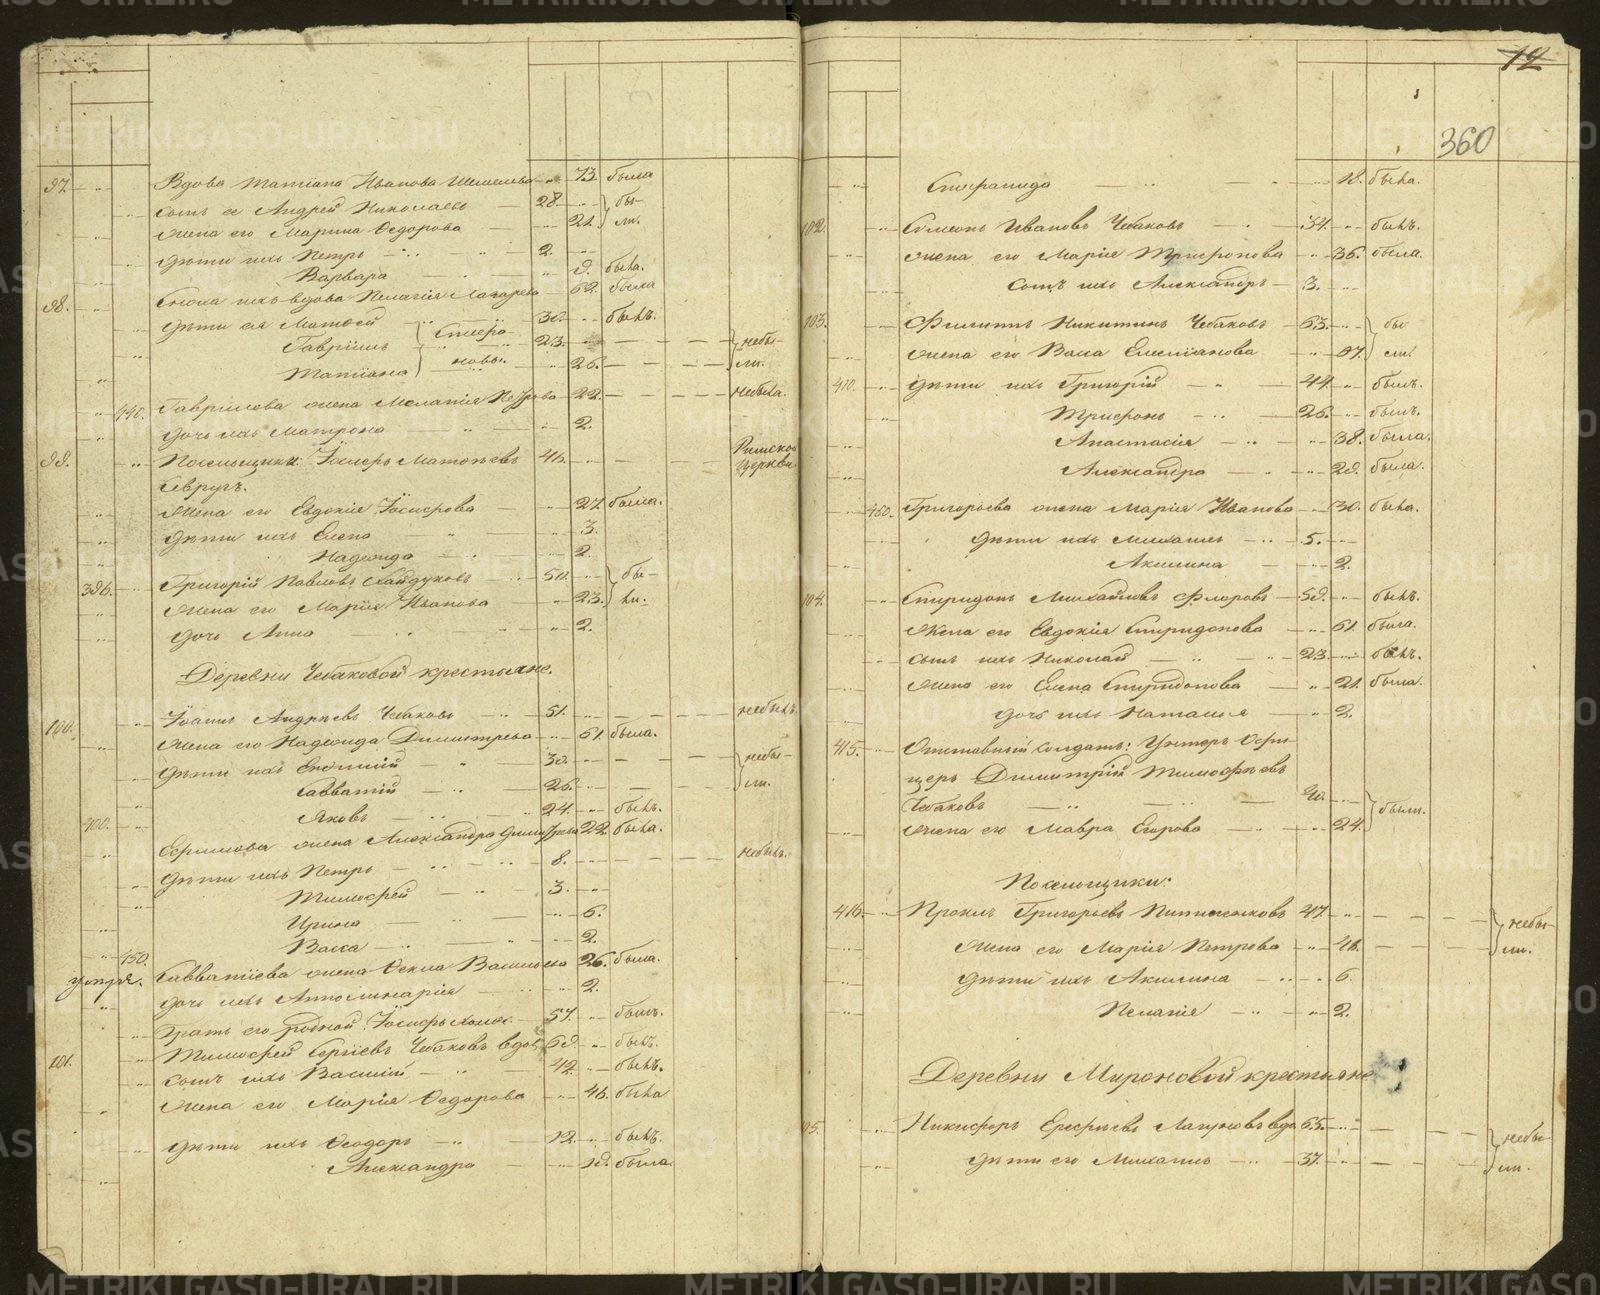 97. Вдова Татiана Иванова Шемелева 73. была
сынъ ея Андрей Николаевъ 28. бы-
жена его Марина Ѳедорова 21. ли.
дѣти ихъ Петръ 2.
Варвара 9. была.
98. Сноха ихъ вдова Пелагiя Лазарева 62. была
дѣти ея Матѳей 30. былъ.
Гаврiилъ 23. небы-
Татiана 26. ли.
440. Гаврилова жена Меланiя Петрова 22. небыла.
дочь ихъ Матрона 2.
99. Посельщики: Iосифъ Матвѣевъ 46. Римской церкви
жена его Евдокiя Iосифова 27. была.
дѣти ихъ Елена 3.
Надежда 2.
396. Григорiй Павловъ Хайдуковъ 50. бы-
жена его Марiя Иванова 23. ли.
дочь Анна 2.
Деревни Чебаковой крестьяне.
100. Iоаннъ Андреевъ Чебаковъ 51. небылъ.
жена его Надежда Димитрiева 51. была.
дѣти ихъ Евфимiй 30. небы-
Савватiй 26. ли.
Яковъ 24. былъ.
400. Евфимова жена Александра Димитрiева 22. была.
дѣти ихъ Петръ 8. небылъ.
Тимофей 3.
Ирина 6.
Васса 2.
450. Савватiева жена Ѳекла Васильева 26. была.
дочь ихъ Апполинарiя 2.
Братъ его родной Iосифъ холос. 57. былъ.
101. Тимофей Сергiевъ Чебаковъ вдов. 69. былъ.
сынъ ихъ Василiй 42. былъ.
жена его Марiя Ѳедорова 46. была
дѣти ихъ Ѳеодоръ 12. былъ.
Александра 19. была
12
360
Степанида 18. была.
102. Симеонъ Ивановъ Чебаковъ 34. былъ.
жена его Марiя Трифонова 36. была.
сынъ ихъ Александръ 3.
103. Филиппъ Никитинъ Чебаковъ 63. бы
жена его Васса Емелiанова 67. ли.
410. дѣти ихъ Григорiй 44. былъ.
Трифонъ 26. былъ.
Анастасiя 38. была.
Александра 29. была.
460. Григорьева жена Марiя Иванова 30. была.
дѣти ихъ Михаилъ 5.
Акилина 2.
104. Спиридонъ Михайловъ Флоровъ 59. былъ.
Жена его Евдокiя Спиридонова 61. была.
сынъ ихъ Николай 23. былъ.
жена его Елена Спиридонова 21. была.
дочь ихъ Наталья 2.
415. Отставный солдатъ: Унтеръ Офи-
церъ Димитрiй Тимофѣевъ
Чебаковъ 40.
жена его Мавра Егорова 24. были.
Посельщики:
416. Проклъ Григорьевъ 47. небы-
жена его Марiя Петрова 46. ли.
дѣти ихъ Акилина 6.
Пелагiя 2.
Деревни Мироновой крестьяне
Никифоръ Ерефѣевъ вдов. 65. небы-
дѣти его Михаилъ 37. ли.
METRIKI.GASO-URAL.RU